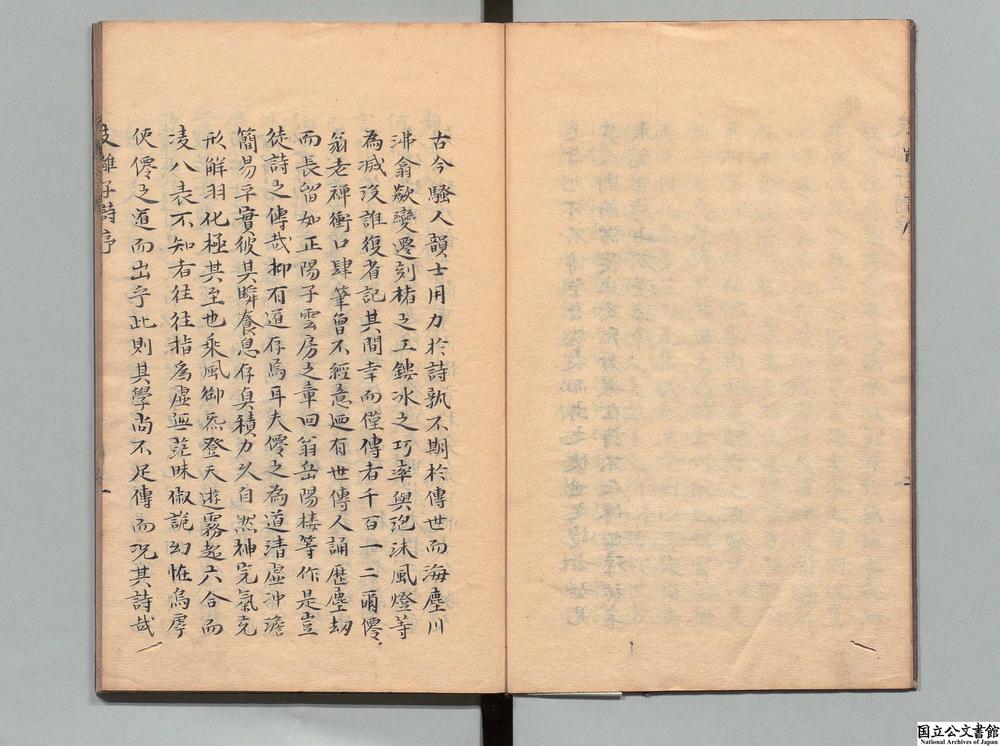 古今騷人韻士用力於詩孰不期於傳世而海塵川
沸翁歘變遷刻楮之工鏤冰之巧率與泡沫風燈等
為滅沒誰復省記其間幸而僅傳者千百一二爾僊
翁老禪衝口肆筆曾不經意迺有世傳人誦歷塵劫
而長留如正陽子雲房之章回翁岳陽樓等作是豈
徒詩之傳哉抑有道存焉耳夫僊之為道清虛沖澹
簡易平實彼其瞬養息存真積力久自然神完氣充
形解羽化極其至也乘風御炁登天遊霧超六合而
凌八表不知者往往指為虛無茫昧俶詭幻怪烏虖
使僊之道而出乎此則其學尚不足傳而況其詩哉
支離子詩序
一
国立公文書館
National Archives of Japan